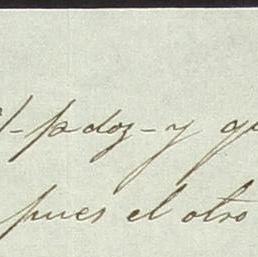 pa doz - y qu
pues el otro